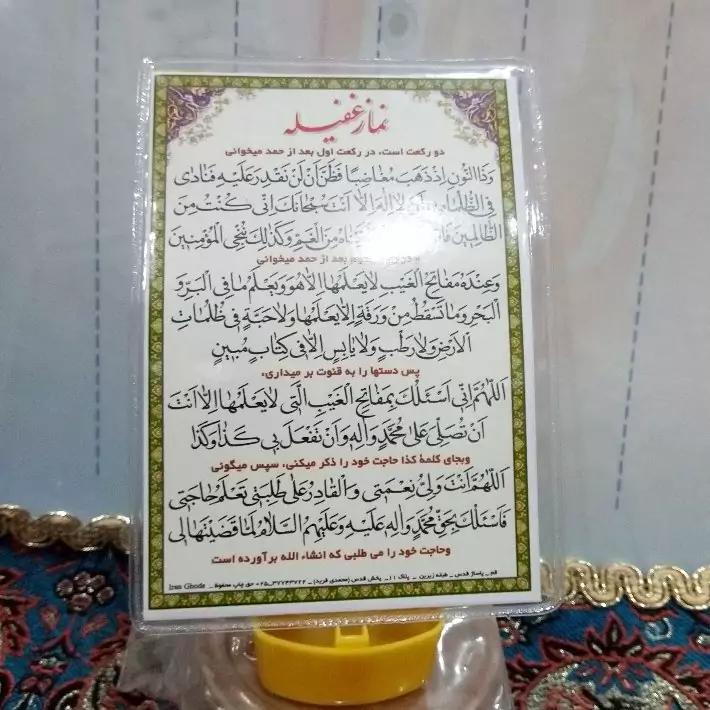 نماز غفیله
دو رکعت است، در رکعت اول بعد از حمد میخوانی
وَذَا النُّونِ اِذْ ذَهَبَ مُغَاضِبًا فَظَنَّ اَنْ لَنْ نَقْدِرَ عَلَیْهِ فَنَادٰی
فِی الظُّلُمَاتِ اَنْ لَا اِلٰهَ اِلَّا اَنْتَ سُبْحَانَكَ اِنّی كُنْتُ مِنَ
الظَّالِمینَ مِنَ الْغَمِّ وَكَذٰلِكَ نُنْجِی الْمُؤْمِنینَ
بعد از حمد میخوانی
وَعِنْدَهُ مَفَاتِحُ الْغَیْبِ لَا یَعْلَمُهَا اِلَّا هُوَ وَیَعْلَمُ مَا فِی الْبَرِّ وَ
الْبَحْرِ وَمَا تَسْقُطُ مِنْ وَرَقَةٍ اِلَّا یَعْلَمُهَا وَلَا حَبَّةٍ فی ظُلُمَاتِ
الْاَرْضِ وَلَا رَطْبٍ وَلَا یَابِسٍ اِلَّا فی كِتَابٍ مُبینٍ
پس دستها را به قنوت بر میداری،
اَللّٰهُمَّ اِنّی اَسْئَلُكَ بِمَفَاتِحِ الْغَیْبِ الَّتی لَا یَعْلَمُهَا اِلَّا اَنْتَ
اَنْ تُصَلِّیَ عَلٰی مُحَمَّدٍ وَآلِهِ وَاَنْ تَفْعَلَ بی كَذَا وَكَذَا
وبجای کلمهٔ کذا حاجت خود را ذکر میکنی، سپس میگوئی
اَللّٰهُمَّ اَنْتَ وَلِیُّ نِعْمَتی وَالْقَادِرُ عَلٰی طَلِبَتی تَعْلَمُ حَاجَتی
فَاَسْئَلُكَ بِحَقِّ مُحَمَّدٍ وَآلِهِ عَلَیْهِ وَعَلَیْهِمُ السَّلَامُ لَمَّا قَضَیْتَهَا لی
وحاجت خود را می طلبی که انشاء الله برآورده است
قم _ پاساژ قدس _ طبقه زیرین _ پلاک ۱۱ _ پخش قدس (محمدی فرید) _ ۳۷۷۴۳۷۲۲-۰۲۵ حق چاپ محفوظ _ Iran Ghods